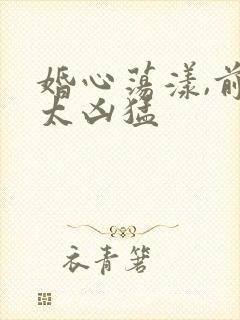 婚心荡漾,前
太凶猛
衣青箬